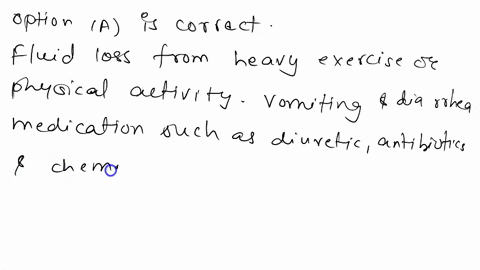 option (A) is correct.
Fluid loss from heavy exercise or
physical activity. Vomiting & diarrhea
medication such as diuretic, antibiotics
& chem